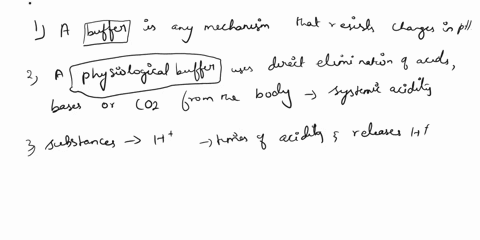 1) A buffer is any mechanism that resists changes in pH
2) A physiological buffer uses direct elimination of acids,
bases or CO2 from the body → systemic acidity
3) substances → H+ → times of acidity & releases H+